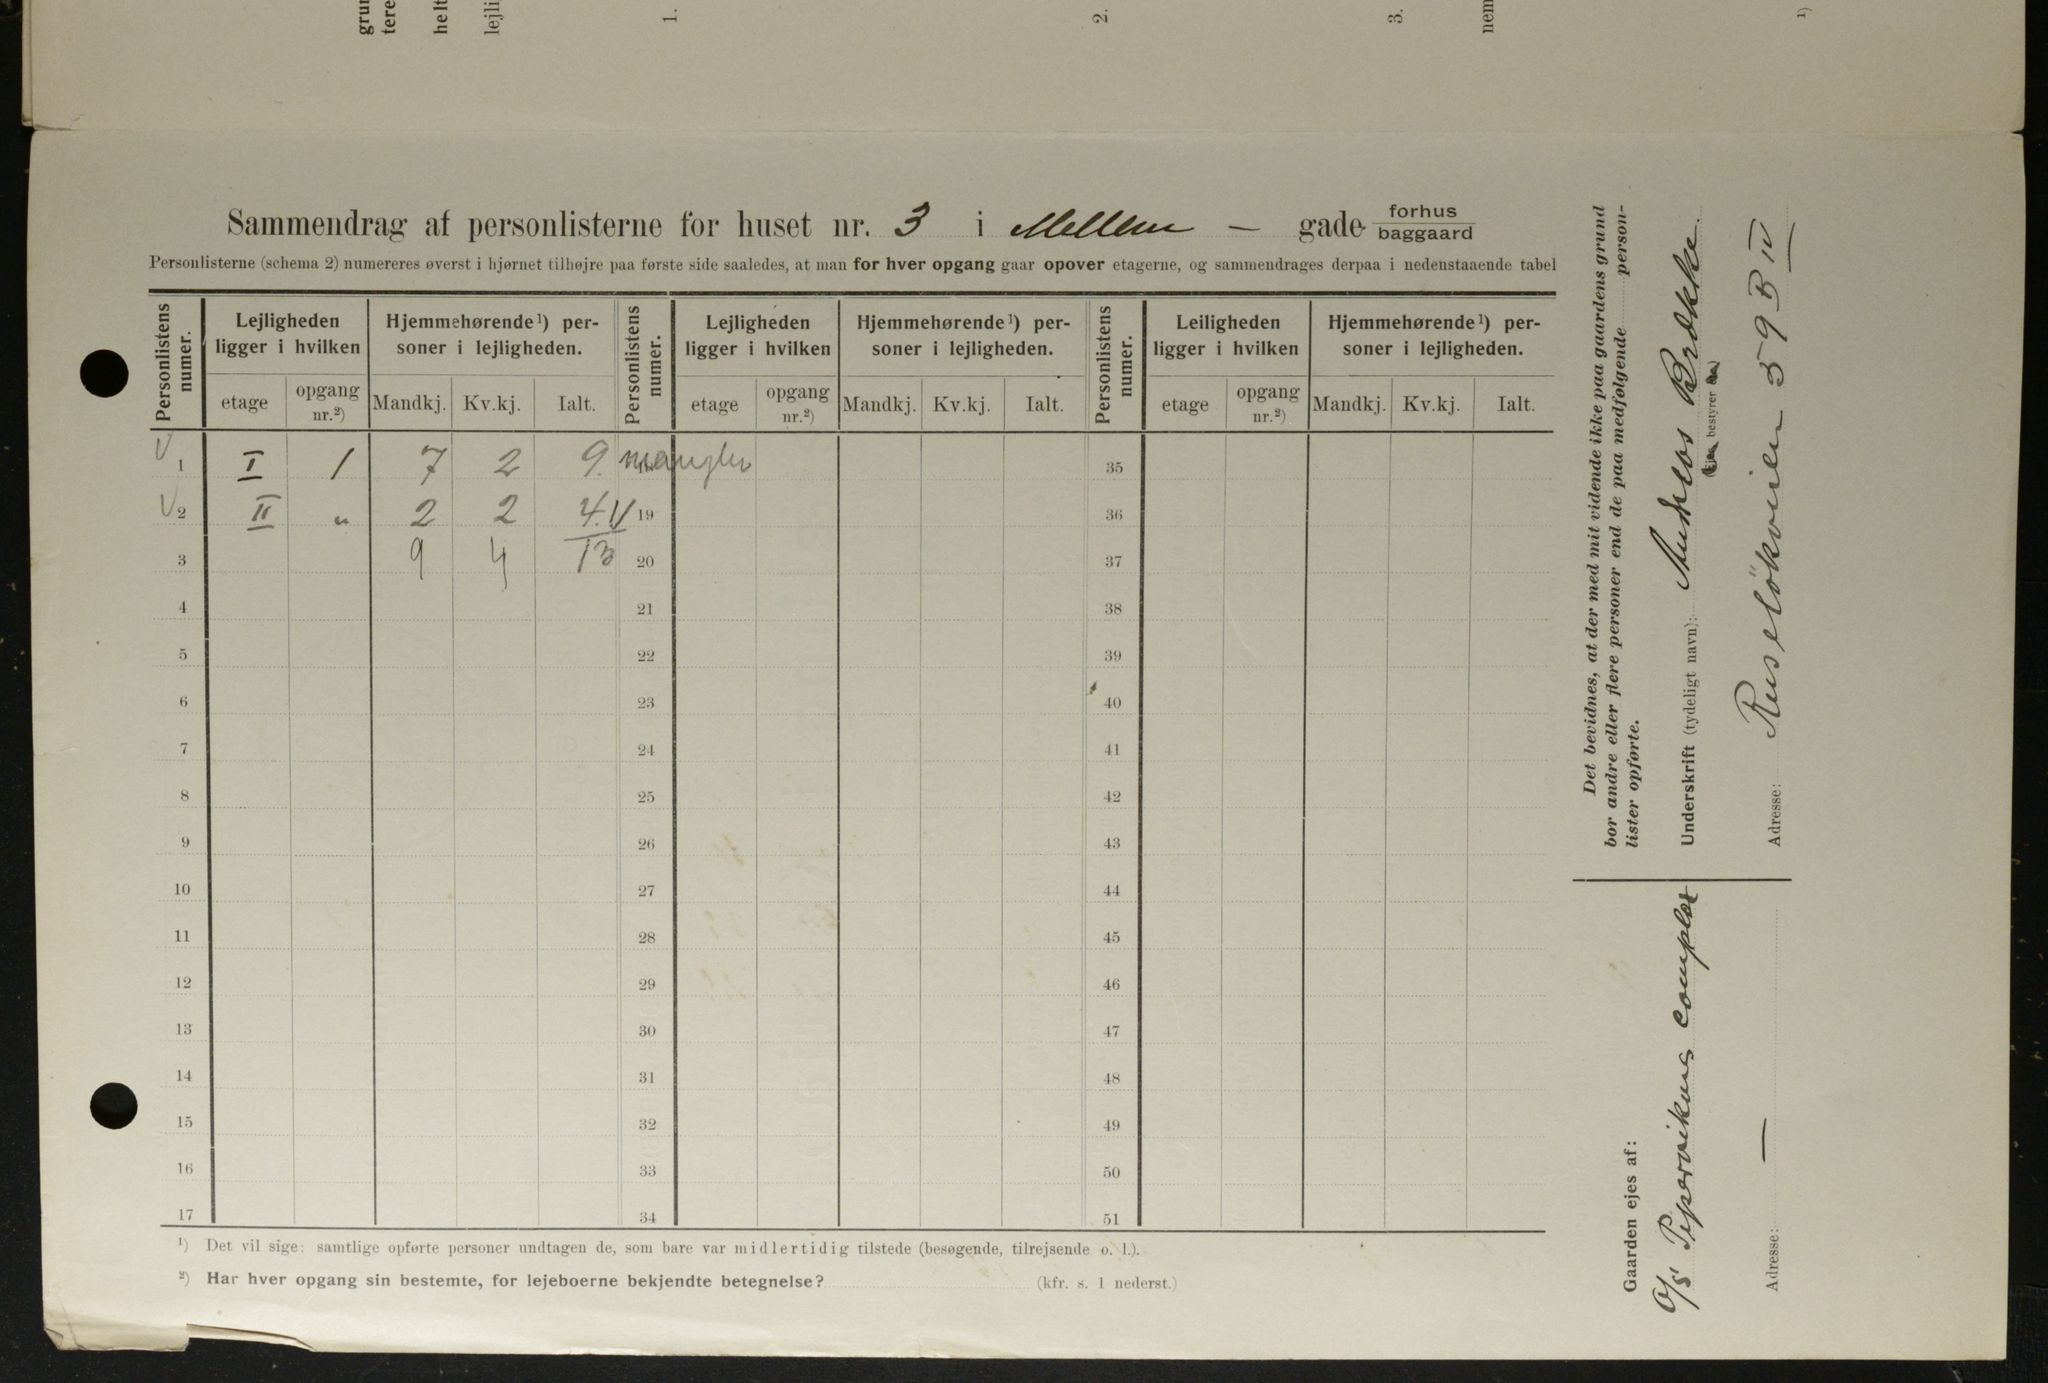 grun
tere
helt
lejli
1.
2.
3.
nem
1)
Sammendrag af personlisterne for huset nr. 3 i Mellem — gade forhus baggaard
Personlisterne (schema 2) numereres øverst i hjørnet tilhøjre paa første side saaledes, at man for hver opgang gaar opover etagerne, og sammendrages derpaa i nedenstaaende tabel
Personlistens numer. Lejligheden ligger i hvilken Hjemmehørende¹) personer i lejligheden. Personlistens numer. Lejligheden ligger i hvilken Hjemmehørende¹) personer i lejligheden. Personlistens numer. Leiligheden ligger i hvilken Hjemmehørende¹) personer i lejligheden.
etage opgang nr.²) Mandkj. Kv.kj. Ialt. etage opgang nr.²) Mandkj. Kv.kj. Ialt. etage opgang nr.²) Mandkj. Kv.kj. Ialt.
V 1 I 1 7 2 9. mangler 35
V 2 II " 2 2 4. V 19 36
3 9 4 13 20 37
4 21 38
5 22 39
6 23 40
7 24 41
8 25 42
9 26 43
10 27 44
11 28 45
12 29 46
13 30 47
14 31 48
15 32 49
16 33 50
17 34 51
¹) Det vil sige: samtlige opførte personer undtagen de, som bare var midlertidig tilstede (besøgende, tilrejsende o. l.).
²) Har hver opgang sin bestemte, for lejeboerne bekjendte betegnelse? (kfr. s. 1 nederst.)
Det bevidnes, at der med mit vidende ikke paa gaardens grund
bor andre eller flere personer end de paa medfølgende person-
lister opførte.
Underskrift (tydeligt navn): Andreas Brække
bestyrer
Adresse: Ruseløkveien 59 B IV
Gaarden ejes af:
O/S Pipervikens complex
Adresse: —